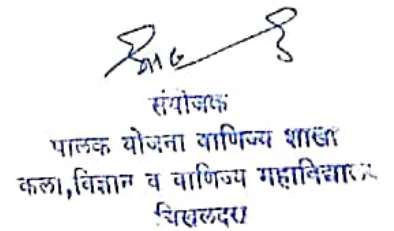 संयोजक
पालक योजना वाणिज्य शाखा
कला,विज्ञान व वाणिज्य महाविद्यालय
चिखलदरा